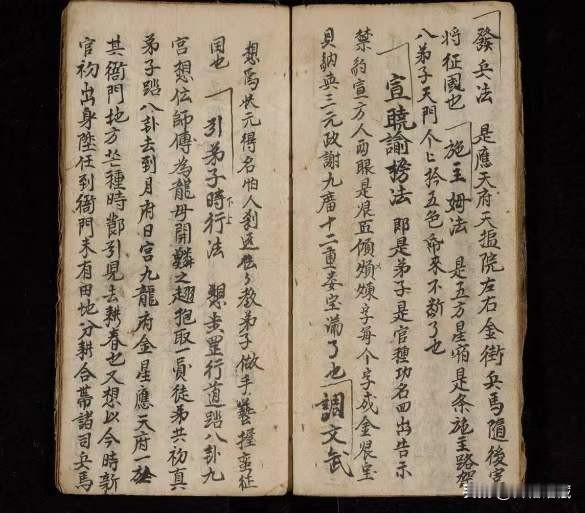 發兵法 是應天府天猛院左右金街兵馬隨後害
將征國也 施主姆法 是五方星宿是条施主路架
八弟子天門个上拾五色 來不断了也
宣曉諭榜法 即是弟子是官種功名四出告示
禁約宣方人两眼是 傾煩煉字每个字成金 室
貝納真三元政謝九 十二重姜室 了也 調文武
想為状元得名怕人 遠 教弟子做手藝 蛮征
国也 引弟子時上下行法 想 罡行道踏八卦九
宮想伝師傅為龍母開 之 抱取一員徒弟共初真
弟子踏八卦去到月府日宮九龍府金星應天府一
其衙門地方芒種時 引見去耕春也又想以今時新
官初出身陞任到衙門未有田地分耕合带諸司兵馬